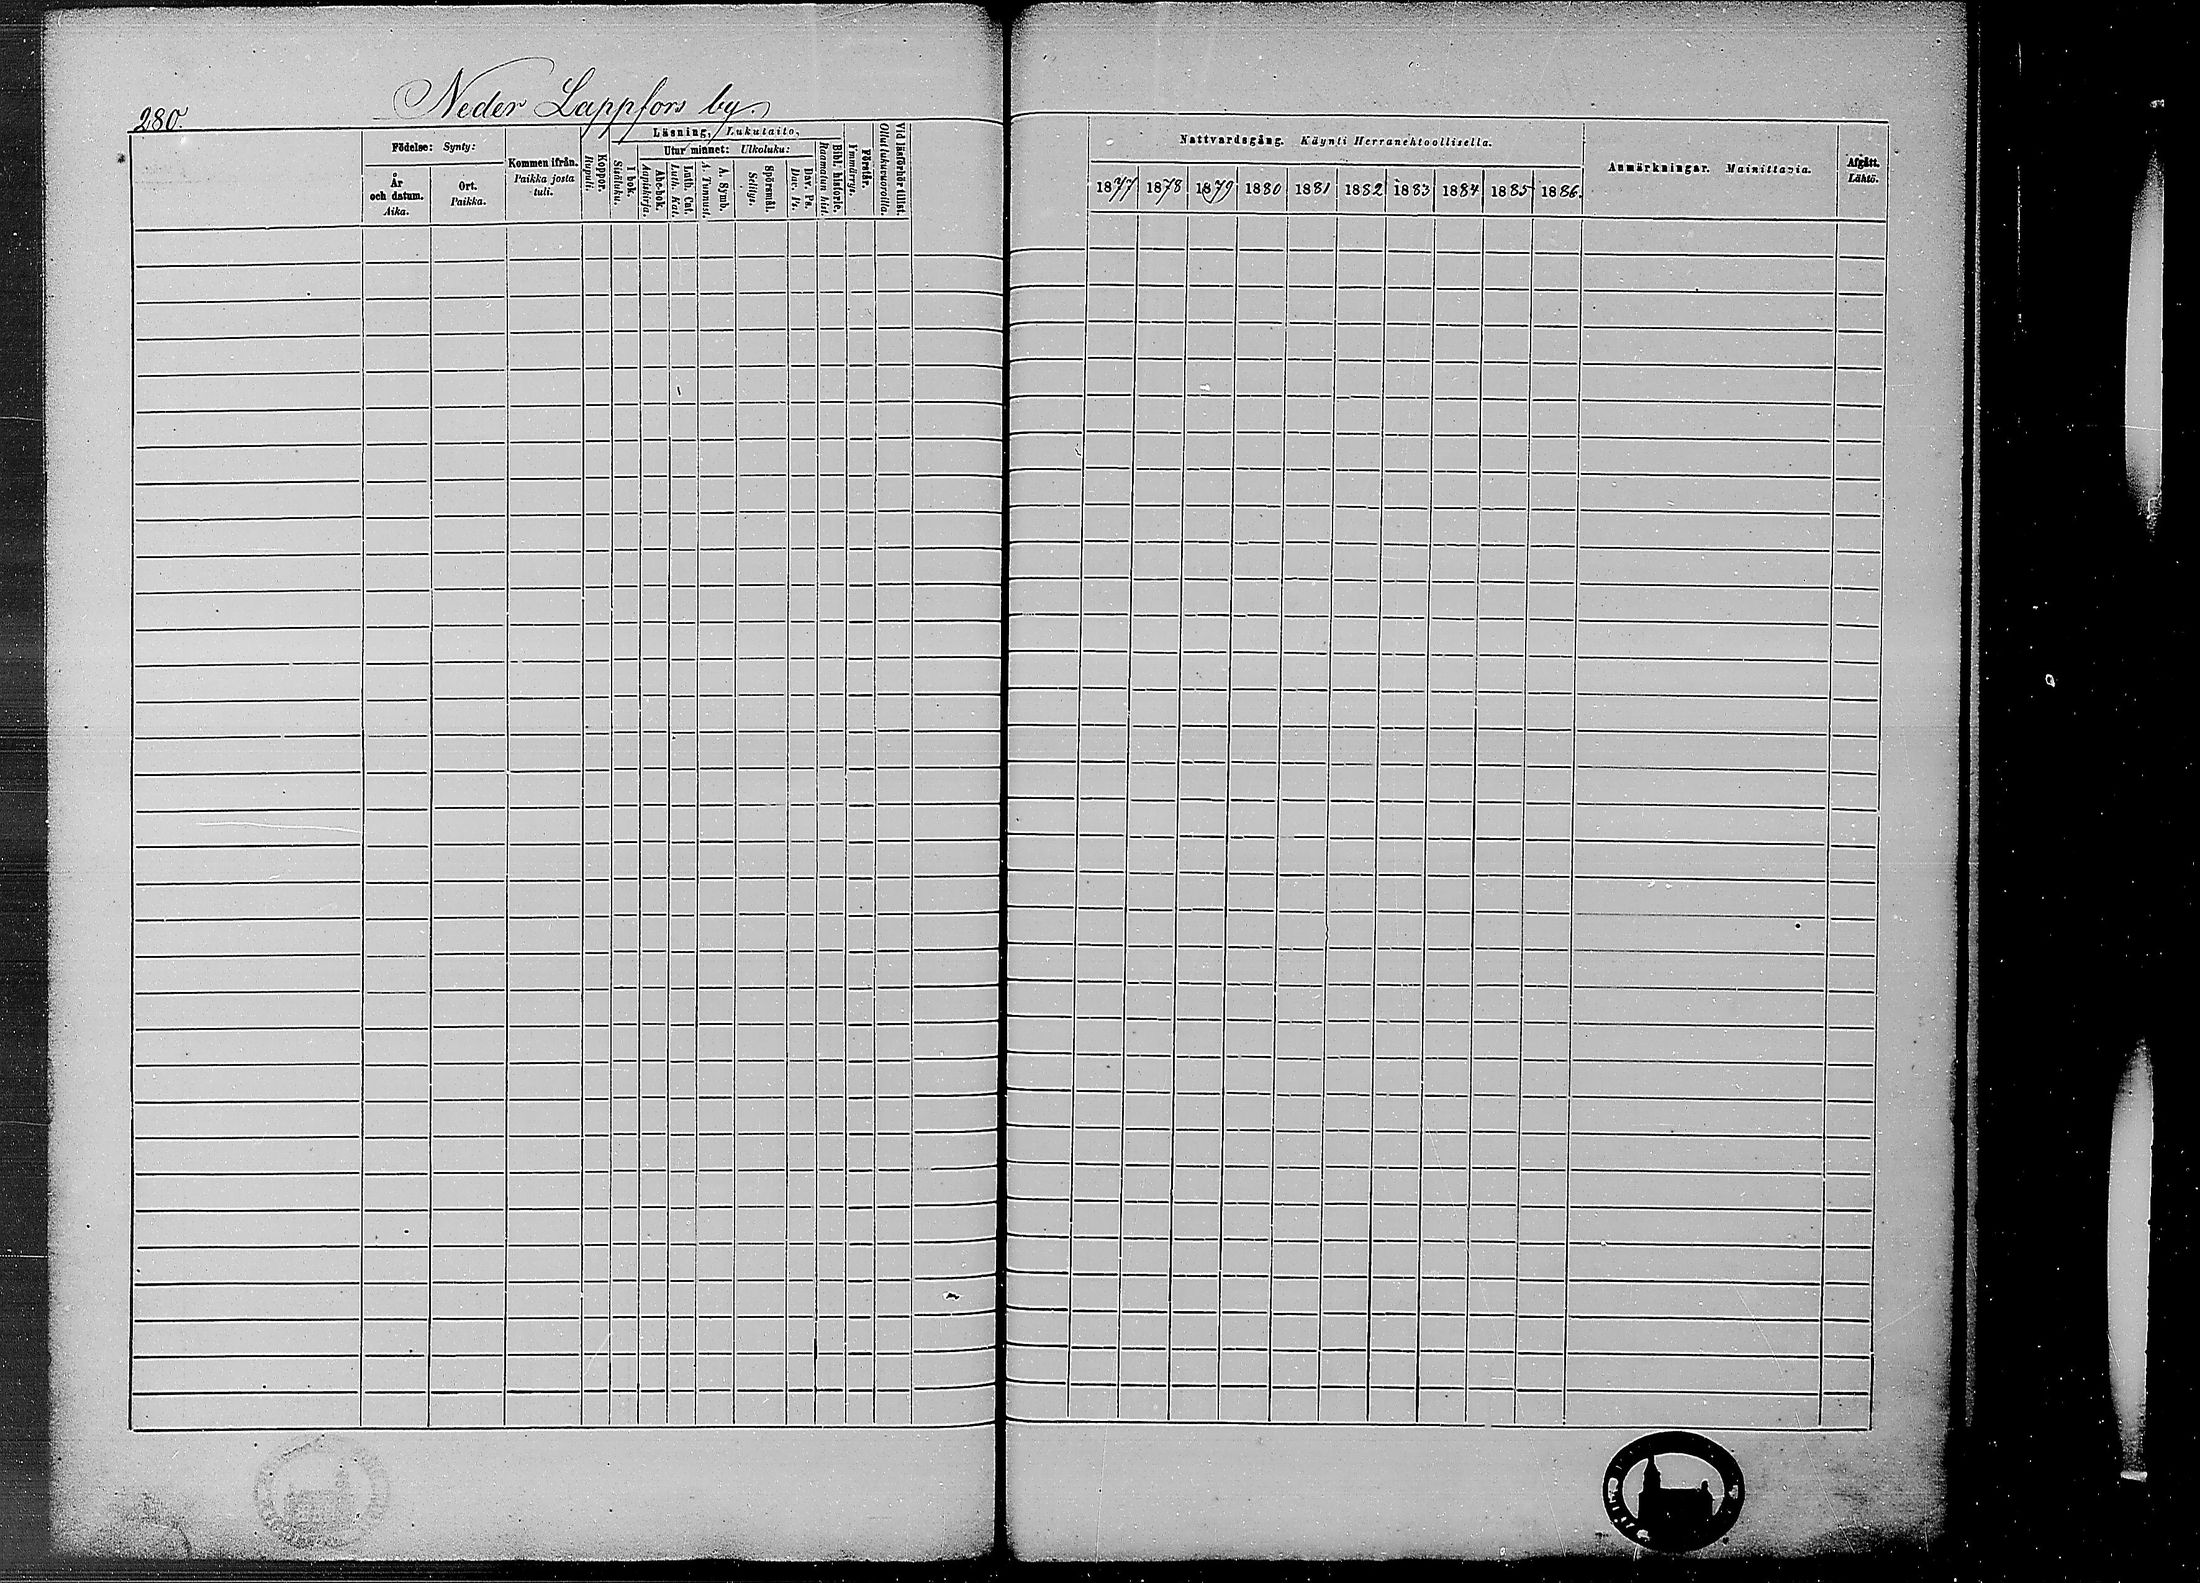 280.
Neder Lappfors by.
Födelse: Synty:
År och datum. Aika.
Ort. Paikka.
Kommen ifrån. Paikka josta tuli.
Koppor. Rupuli.
Läsning, Lukutaito,
I bok. Sisäluku.
Utur minnet: Ulkoluku:
Abc-bok. Aapiskirja.
Luth. Cat. Luth. Kat.
A. Symb. A. Tunnust.
Spörsmål. Selitys.
Dav. Ps. Dav. Ps.
Bibl. historie. Raamatun hist.
Förstår. Ymmärrys.
Vid läsförhör tillst. Ollut lukuvuoroilla.
Nattvardsgång. Käynti Herranehtoollisella.
1877 1878 1879 1880 1881 1882 1883 1884 1885 1886.
Anmärkningar. Mainittavia.
Afgått. Lähtö.